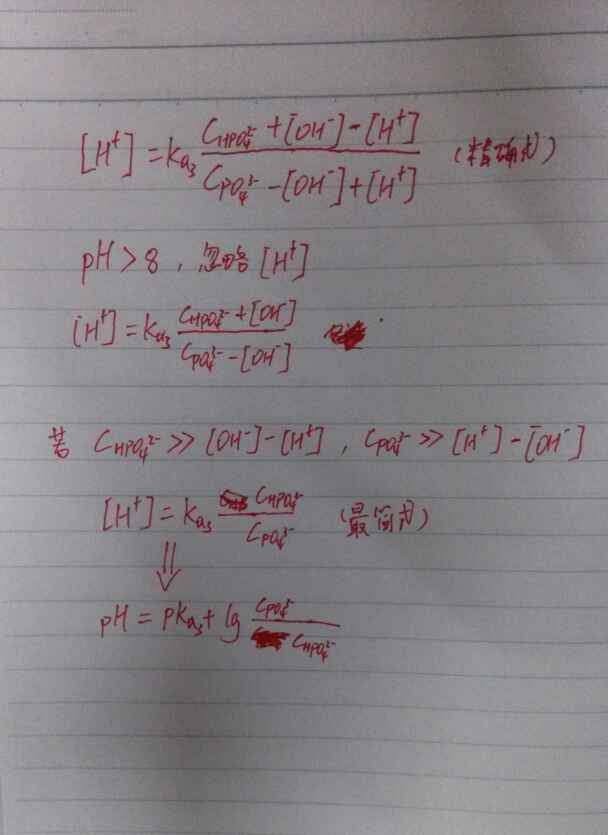 [H⁺] = Ka₃ (C_HPO₄²⁻ + [OH⁻] - [H⁺]) / (C_PO₄³⁻ - [OH⁻] + [H⁺]) (精确式)
pH > 8 , 忽略 [H⁺]
[H⁺] = Ka₃ (C_HPO₄²⁻ + [OH⁻]) / (C_PO₄³⁻ - [OH⁻])
若 C_HPO₄²⁻ >> [OH⁻] - [H⁺] , C_PO₄³⁻ >> [H⁺] - [OH⁻]
[H⁺] = Ka₃ C_HPO₄²⁻ / C_PO₄³⁻ (最简式)
⇓
pH = pKa₃ + lg C_PO₄³⁻ / C_HPO₄²⁻